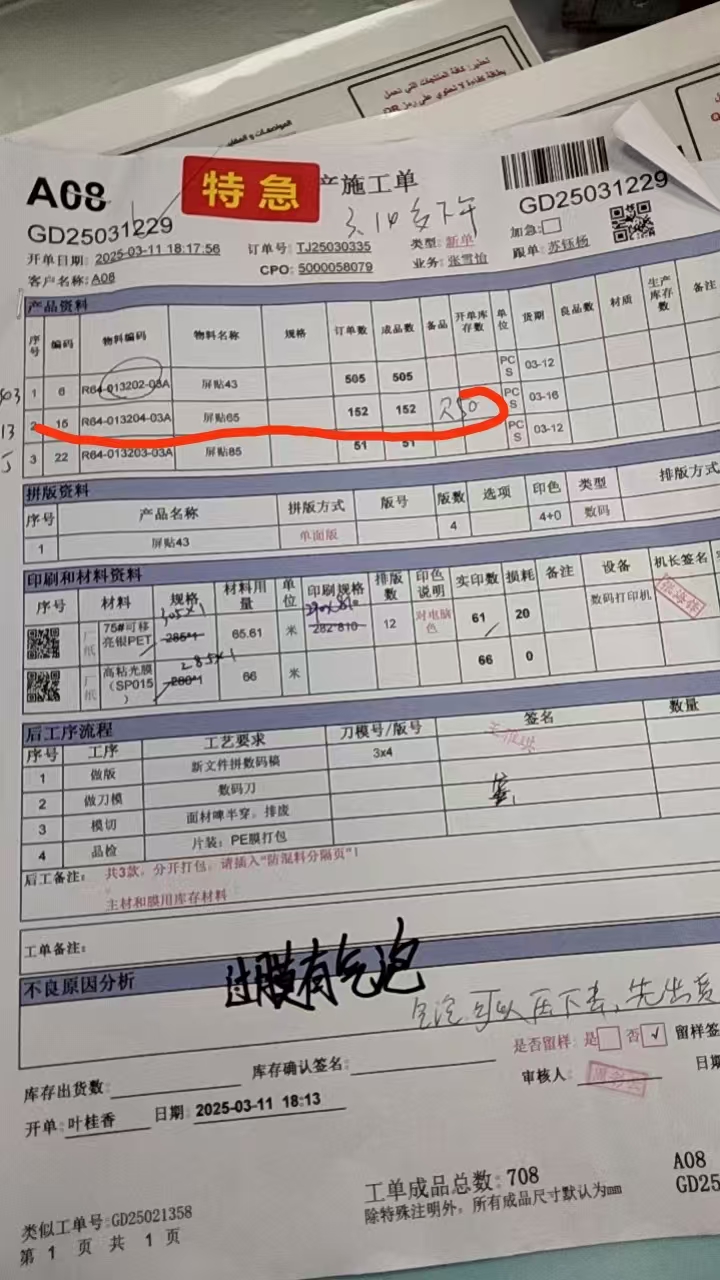 تحذير: كافة المنتجات التي تحمل
بطاقة كفاءة لا تحتوي على رمز QR
A08
特急
产施工单
GD25031229
GD25031229
开单日期: 2025-03-11 18:17:56
订单号: TJ25030335
类型: 新单
加急:
客户名称: A08
CPO: 5000058079
业务: 张雪怡
跟单: 苏钰杨
产品资料
序号 编码 物料编码 物料名称 规格 订单数 成品数 备品 开单库存数 单位 货期 良品数 材质 生产库存数 备注
1 6 R64-013202-03A 屏贴43 505 505 PCS 03-12
2 15 R64-013204-03A 屏贴65 152 152 PCS 03-16
3 22 R64-013203-03A 屏贴85 51 51 PCS 03-12
拼版资料
序号 产品名称 拼版方式 版号 版数 选项 印色 类型 排版方式
1 屏贴43 单面版 4 4+0 数码
印刷和材料资料
序号 材料 规格 材料用量 单位 印刷规格 排版数 印色说明 实印数 损耗 备注 设备 机长签名
305×1 290×810
厂纸 75#可移亮银PET 285*1 65.61 米 282*810 12 对电脑色 61 20 数码打印机
285×1
厂纸 高粘光膜(SP015) 280*1 66 米 66 0
后工序流程
序号 工序 工艺要求 刀模号/版号 签名 数量
1 做版 新文件拼数码稿 3x4
2 做刀模 数码刀
3 模切 面材啤半穿，排废
4 品检 片装；PE膜打包
后工备注: 共3款，分开打包，请插入“防混料分隔页”!
主材和膜用库存材料
工单备注:
不良原因分析
过膜有气泡
气泡可以压下去，先出货
是否留样: 是 否 √ 留样签
库存出货数:
库存确认签名:
审核人:
日期
开单: 叶桂香 日期: 2025-03-11 18:13
工单成品总数: 708
A08
除特殊注明外，所有成品尺寸默认为mm
GD25
类似工单号: GD25021358
第 1 页 共 1 页